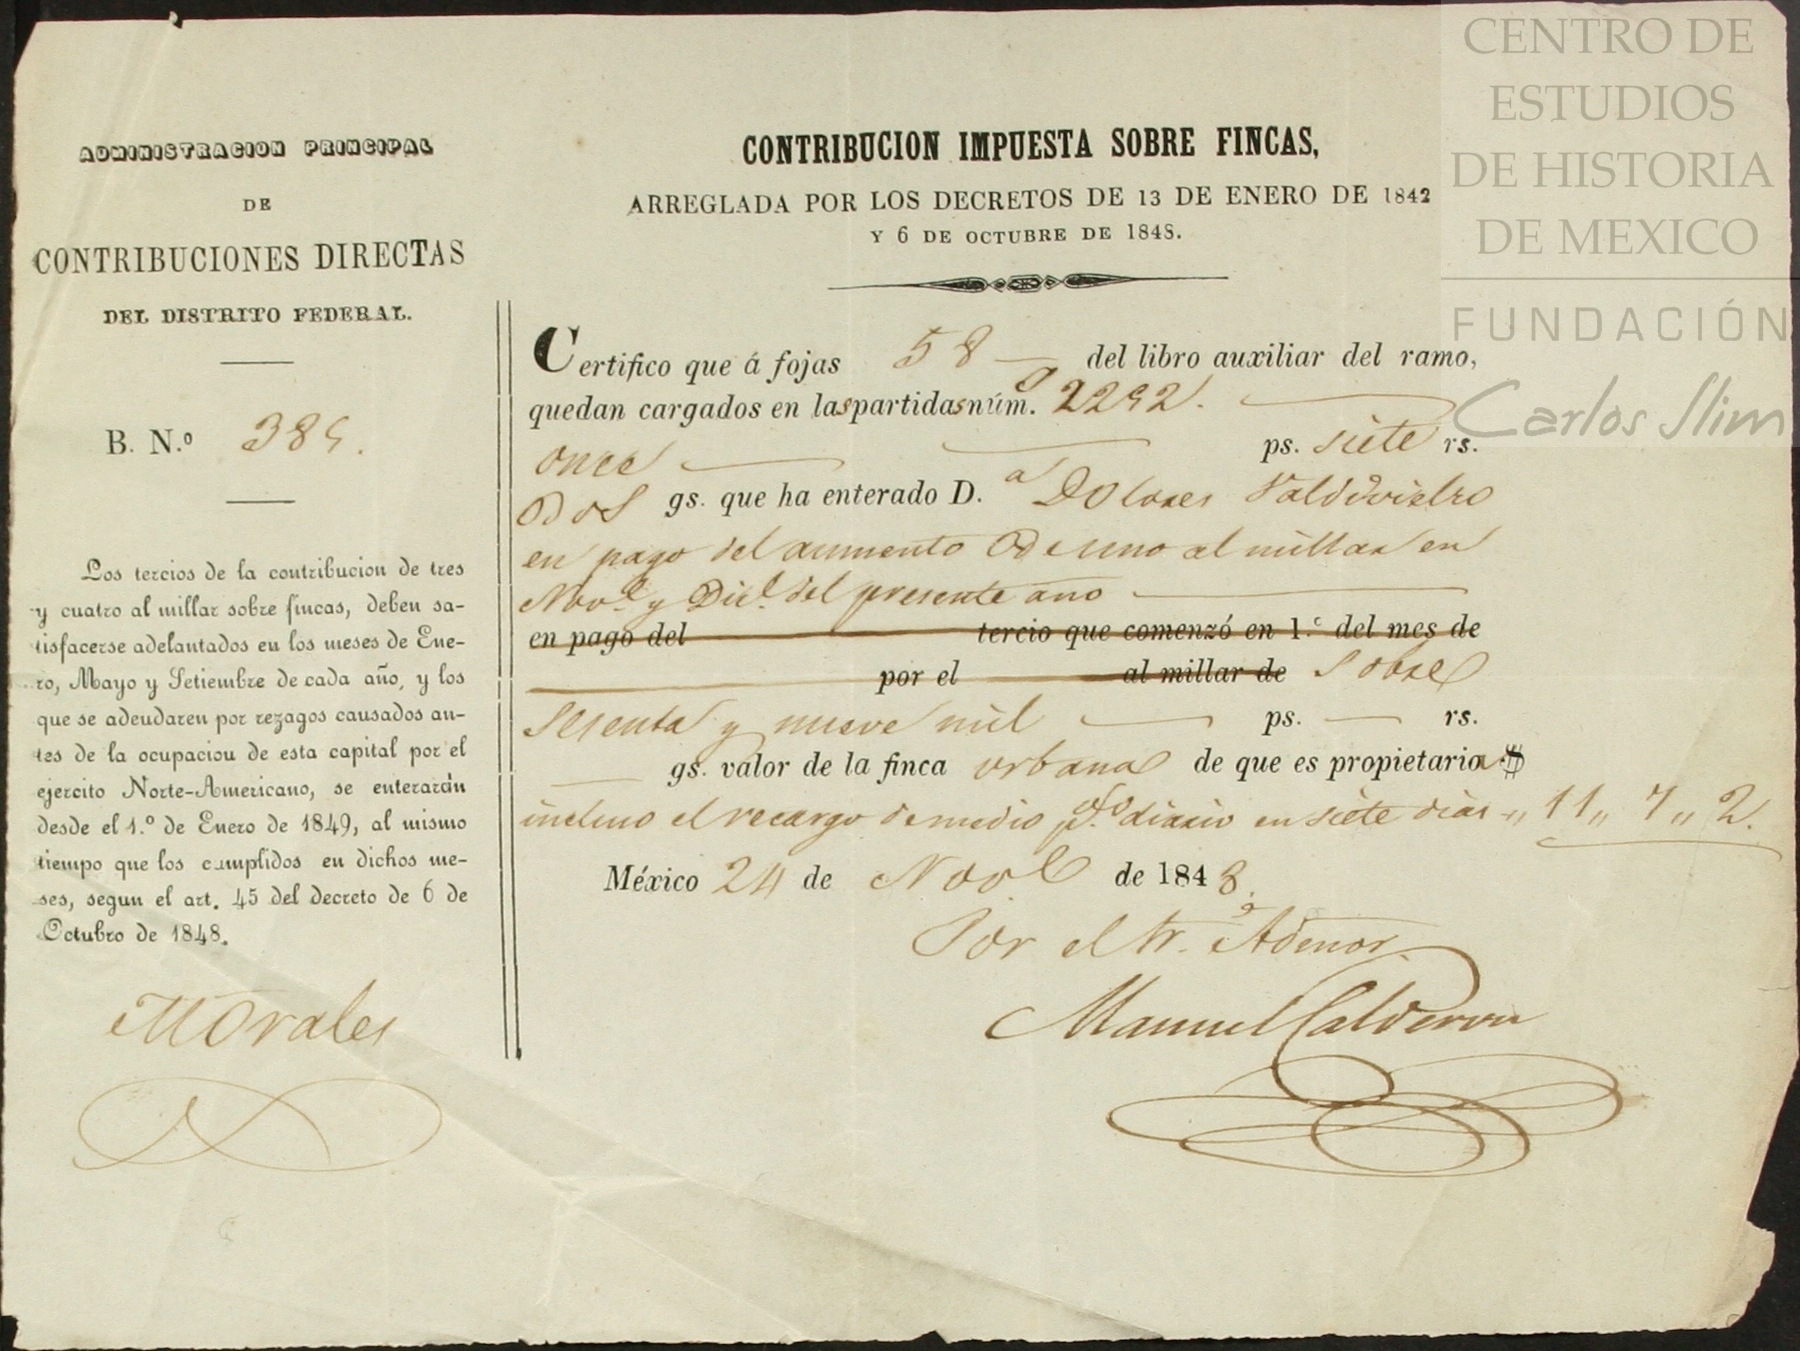 ADMINISTRACION PRINCIPAL
DE
CONTRIBUCIONES DIRECTAS
DEL DISTRITO FEDERAL.
B. N.º 385.
Los tercios de la contribucion de tres
y cuatro al millar sobre fincas, deben sa-
tisfacerse adelantados en los meses de Ene-
ro, Mayo y Setiembre de cada año, y los
que se adeudaren por rezagos causados an-
tes de la ocupacion de esta capital por el
ejercito Norte-Americano, se enterarán
desde el 1.º de Enero de 1849, al mismo
tiempo que los cumplidos en dichos me-
ses, segun el art. 45 del decreto de 6 de
Octubre de 1848.
Morales
CONTRIBUCION IMPUESTA SOBRE FINCAS,
ARREGLADA POR LOS DECRETOS DE 13 DE ENERO DE 1842
Y 6 DE OCTUBRE DE 1848.
Certifico que á fojas 58 del libro auxiliar del ramo,
quedan cargados en las partidas núm. 2292.
once ps. siete rs.
Dos gs. que ha enterado D.ª Dolores Valdivielso
en pago del aumento de uno al millar en
Nov.e y Dic.e del presente año
en pago del tercio que comenzó en 1.º del mes de
por el al millar de Sobre
sesenta y nueve mil ps. rs.
gs. valor de la finca urbana de que es propietaria $
incluso el recargo de medio p.% diario en siete dias 11,, 7,, 2.
México 24 de Nov.e de 1848.
Por el Sr. Admor.
Manuel Calderon
CENTRO DE
ESTUDIOS
DE HISTORIA
DE MEXICO
FUNDACIÓN
Carlos Slim